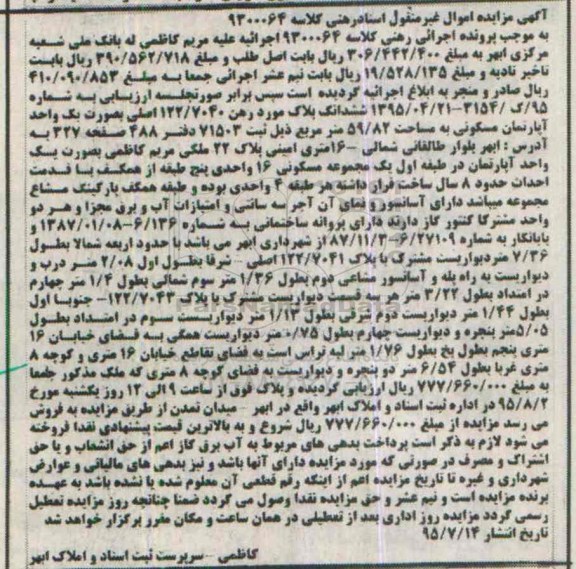 آگهی مزایده اموال غیرمنقول اسنادرهنی کلاسه ۹۳۰۰۰۶۴
به موجب پرونده اجرائی رهنی کلاسه ۹۳۰۰۰۶۴ اجرائیه علیه مریم کاظمی له بانک ملی شعبه
مرکزی ابهر به مبلغ ۳۰۶/۴۴۲/۴۰۰ ریال بابت اصل طلب و مبلغ ۳۹۰/۵۶۲/۷۱۸ ریال بابت
تاخیر تادیه و مبلغ ۱۹/۵۲۸/۱۳۵ ریال بابت نیم عشر اجرائی جمعا به مبلغ ۴۱۰/۰۹۰/۸۵۳
ریال صادر و منجر به ابلاغ اجرائیه گردیده است سپس برابر صورتجلسه ارزیابی به شماره
۹۵/ک /۳۱۵۴-۱۳۹۵/۰۴/۲۱ ششدانگ پلاک مورد رهن ۱۲۲/۷۰۴۰ اصلی بصورت یک واحد
آپارتمان مسکونی به مساحت ۵۹/۸۲ متر مربع ذیل ثبت ۷۱۵۰۳ دفتر ۴۸۸ صفحه ۳۲۷ به
آدرس : ابهر بلوار طالقانی شمالی -۱۶متری امینی پلاک ۲۲ ملکی مریم کاظمی بصورت یک
واحد آپارتمان در طبقه اول یک مجموعه مسکونی ۱۶ واحدی پنج طبقه از همکف با قدمت
احداث حدود ۸ سال ساخت قرار داشته هر طبقه ۴ واحدی بوده و طبقه همکف پارکینگ مشاع
مجموعه میباشد دارای آسانسور و نمای آن آجر سه سانتی و امتیازات آب و برق مجزا و هر دو
واحد مشترکا کنتور گاز دارند دارای پروانه ساختمانی به شماره ۶/۱۳۶-۱۳۸۷/۰۱/۰۸ و
پایانکار به شماره ۶/۲۷۱۰۹-۸۷/۱۱/۳ از شهرداری ابهر می باشد با حدود اربعه شمالا بطول
۷/۳۶ متردیواریست مشترک با پلاک ۱۲۲/۷۰۴۱ اصلی - شرقا بطول اول ۲/۰۸ متر درب و
دیواریست به راه پله و آسانسور مشاعی دوم بطول ۱/۳۶ متر سوم شمالی بطول ۱/۴ متر چهارم
در امتداد بطول ۳/۲۲ متر هر سه قسمت دیواریست مشترک با پلاک ۱۲۲/۷۰۴۳- جنوبا اول
بطول ۱/۴۴ متر دیواریست دوم غربی بطول ۱/۱۳ متر دیواریست سوم در امتداد بطول
۵/۰۵متر پنجره و دیواریست چهارم بطول ۰/۷۵ متر دیواریست همگی به فضای خیابان ۱۶
متری پنجم بطول پخ بطول ۱/۷۶ متر لبه تراس است به فضای تقاطع خیابان ۱۶ متری و کوچه ۸
متری غربا بطول ۶/۵۴ متر دو پنجره و دیواریست به فضای کوچه ۸ متری که ملک مذکور جمعا
به مبلغ ۷۷۷/۶۶۰/۰۰۰ ریال ارزیابی گردیده و پلاک فوق از ساعت ۹ الی ۱۲ روز یکشنبه مورخ
۹۵/۸/۲ در اداره ثبت اسناد و املاک ابهر واقع در ابهر - میدان تمدن از طریق مزایده به فروش
می رسد مزایده از مبلغ ۷۷۷/۶۶۰/۰۰۰ ریال شروع و به بالاترین قیمت پیشنهادی نقدا فروخته
می شود لازم به ذکر است پرداخت بدهی های مربوط به آب برق گاز اعم از حق انشعاب و یا حق
اشتراک و مصرف در صورتی که مورد مزایده دارای آنها باشد و نیز بدهی های مالیاتی و عوارض
شهرداری و غیره تا تاریخ مزایده اعم از اینکه رقم قطعی آن معلوم شده یا نشده باشد به عهده
برنده مزایده است و نیم عشر و حق مزایده نقدا وصول می گردد ضمنا چنانچه روز مزایده تعطیل
رسمی گردد مزایده روز اداری بعد از تعطیلی در همان ساعت و مکان مقرر برگزار خواهد شد
تاریخ انتشار ۹۵/۷/۱۴
کاظمی -سرپرست ثبت اسناد و املاک ابهر